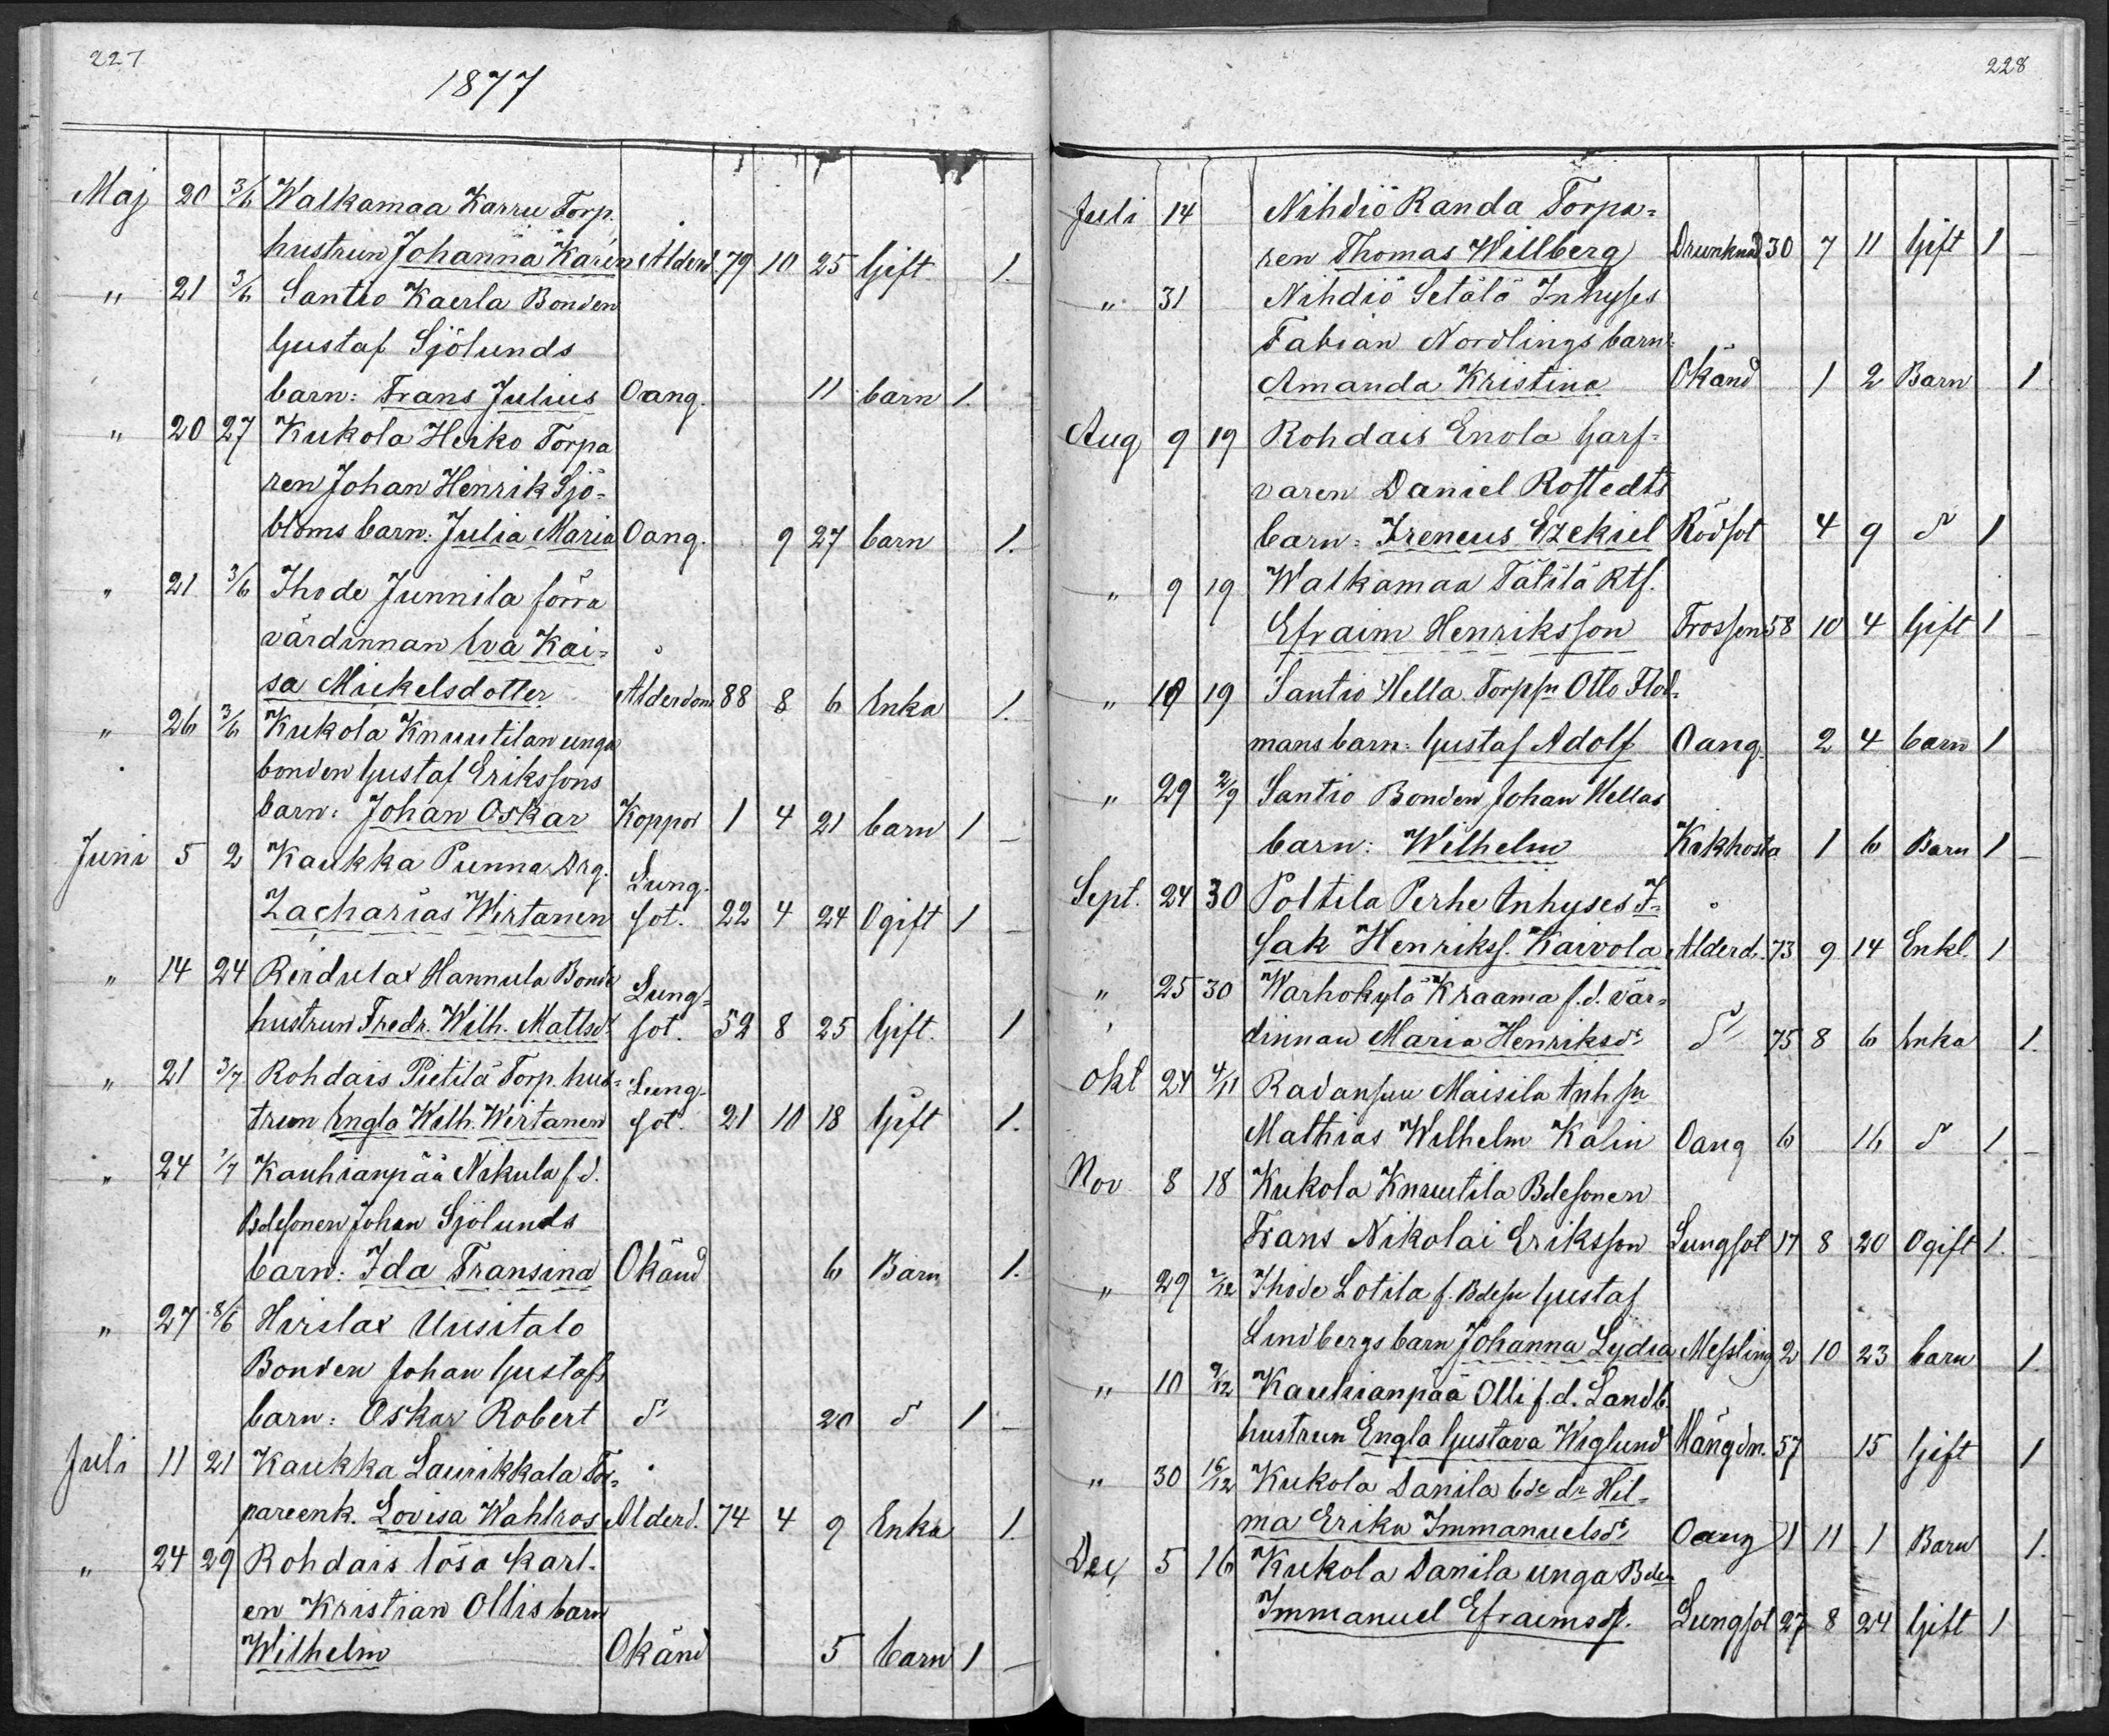 227
1877
Maj 20 3/6 Walkamaa Karru Torp.
hustrun Johanna Karin Alderd. 79 10 25 Gift 1.
" 21 3/6 Santio Kaerla Bonden
Gustaf Sjölunds
barn: Frans Julius Oang. 11 barn 1.
" 20 27 Kukola Heiko Torpa
ren Johan Henrik Sjö-
bloms barn. Julia Maria Oang. 9 27 barn 1.
" 21 3/6 Ihode Junnila förra
värdinnan Eva Kai-
sa Mickelsdotter Alderdom 88 8 6 Enka 1.
" 26 3/6 Kukola Knuutilan unga
bonden Gustaf Erikssons
barn: Johan Oskar Koppor 1 4 21 barn 1 _
Juni 5 2 Kaukka Punna Drg. Lung-
Zacharias Wirtanen sot. 22 4 24 Ogift 1 _
" 14 24 Reidulax Hannula Bonde Lung-
hustrun Fredr. Wilh. Mattsdr sot. 52 8 25 Gift. 1
" 21 3/7 Rohdais Pietilä Torp. hus- Lung-
trun Engla Wilh. Wirtanen sot. 21 10 18 Gift 1.
" 24 1/7 Kauhianpää Nikula f.d.
Bdesonen Johan Sjölunds
barn: Ida Fransina Okänd 6 Barn 1.
" 27 8/6 Hirilax Uusitalo
Bonden Johan Gustafs
barn: Oskar Robert do 20 do 1 _
Juli 11 21 Kaukka Laurikkala Tor-
pareenk. Lovisa Wahlros Alderd. 74 4 9 Enka 1.
" 24 29 Rohdais lösa karl-
en Kristian Ollis barn
Wilhelm Okänd 5 barn 1 _
228
Juli 14 Nihdiö Randa Torpa-
ren Thomas Willberg Drunknad 30 7 11 Gift 1 _
" 31 Nihdiö Setälä Inhyses
Fabian Nordlings barn:
Amanda Kristina Okänd 1 2 Barn 1
Aug 9 19 Rohdais Enola Garf-
varen Daniel Rostedts
barn: Ireneus Ezekiel Rödsot 4 9 do 1
" 9 19 Walkamaa Tätilä Rtf.
Efraim Henriksson Frossen 58 10 4 Gift 1 _
" 19 Santio Hella Torpsn Otto Flod-
mans barn: Gustaf Adolf Oang. 2 4 barn 1
" 29 2/9 Santio Bonden Johan Hellas
barn: Wilhelm Kikhosta 1 6 Barn 1 _
Sept. 24 30 Poltila Perhe Inhyses I-
sak Henrikss. Kaivola Alderd. 73 9 14 Enkl. 1
" 25 30 Warhokylä Kraama f.d. vär-
dinnan Maria Henriksdr do 75 8 6 Enka 1.
Okt 24 4/11 Radansuu Maisila Inhsn
Mathias Wilhelm Kalin Oang 6 16 do 1 _
Nov. 8 18 Kukola Knuutila Bdesonen
Frans Nikolai Eriksson Lungsot 17 8 20 Ogift 1. _
" 29 2/12 Ihode Lotila f. Bdesn Gustaf
Lindbergs barn Johanna Lydia Messling 2 10 23 barn 1
" 10 9/12 Kauhianpää Olli f.d. Landb.
hustrun Engla Gustava Wiglund 57 15 Gift 1
" 30 16/12 Kukola Danila bde dr Hil-
ma Erika Immanuelsdr Oang 1 11 1 Barn 1.
Dec. 5 16 Kukola Danila unga Bden
Immanuel Efraimss. Lungsot 27 8 24 Gift 1